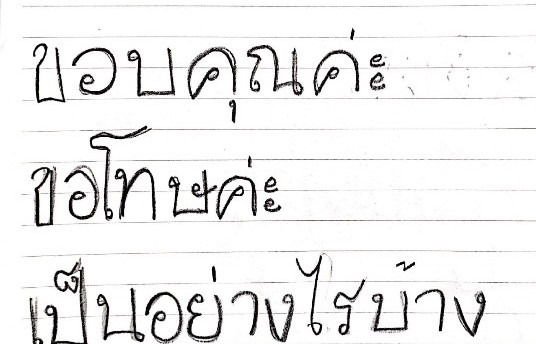 ขอบคุณค่ะ
ขอโทษค่ะ
เป็นอย่างไรบ้าง